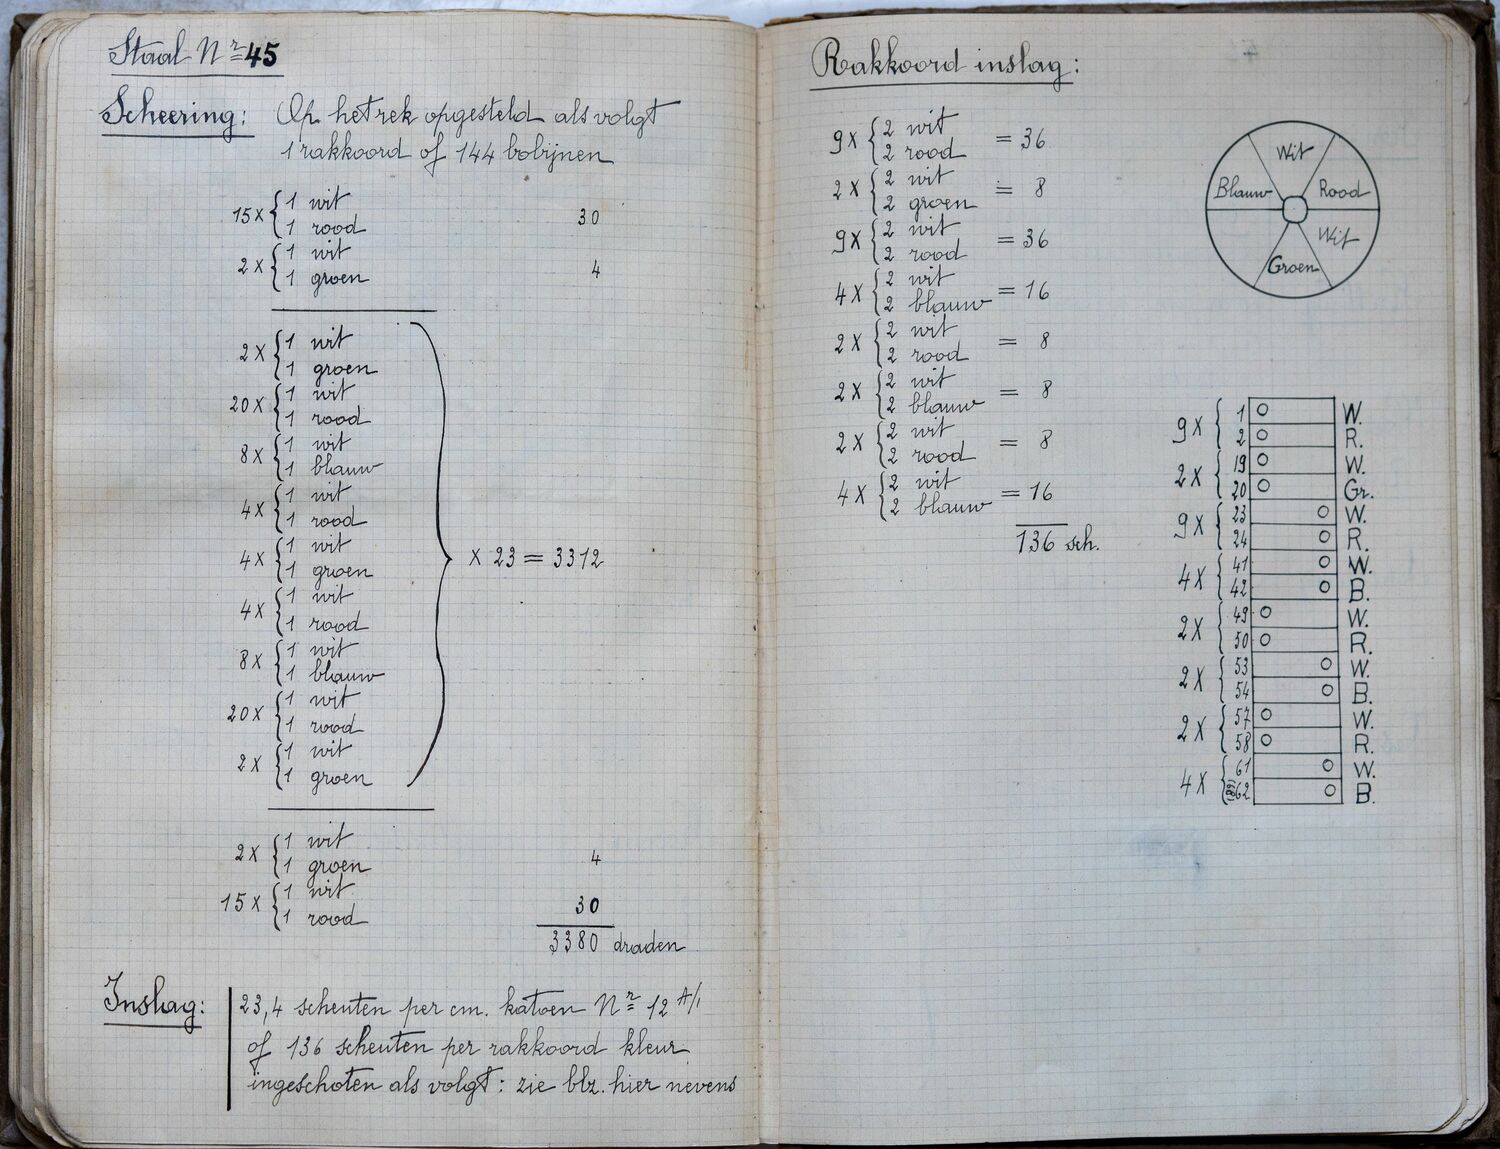 Staal Nr 45
Scheering: Op het rek opgesteld als volgt
1 rakkoord of 144 bobijnen
15 x { 1 wit
1 rood 30
2 x { 1 wit
1 groen 4
2 x { 1 wit
1 groen
20 x { 1 wit
1 rood
8 x { 1 wit
1 blauw
4 x { 1 wit
1 rood
4 x { 1 wit
1 groen
4 x { 1 wit
1 rood
8 x { 1 wit
1 blauw
20 x { 1 wit
1 rood
2 x { 1 wit
1 groen
} x 23 = 3312
2 x { 1 wit
1 groen 4
15 x { 1 wit
1 rood 30
3380 draden
Inslag: 23,4 scheuten per cm. katoen Nr 12 A/1
of 136 scheuten per rakkoord kleur
ingeschoten als volgt: zie blz. hier nevens
Rakkoord inslag:
9 x { 2 wit
2 rood = 36
2 x { 2 wit
2 groen = 8
9 x { 2 wit
2 rood = 36
4 x { 2 wit
2 blauw = 16
2 x { 2 wit
2 rood = 8
2 x { 2 wit
2 blauw = 8
2 x { 2 wit
2 rood = 8
4 x { 2 wit
2 blauw = 16
136 sch.
Wit
Rood
Wit
Groen
Blauw
9 x { 1 W.
2 R.
2 x { 19 W.
20 Gr.
9 x { 23 W.
24 R.
4 x { 41 W.
42 B.
2 x { 49 W.
50 R.
2 x { 53 W.
54 B.
2 x { 57 W.
58 R.
4 x { 61 W.
62 B.